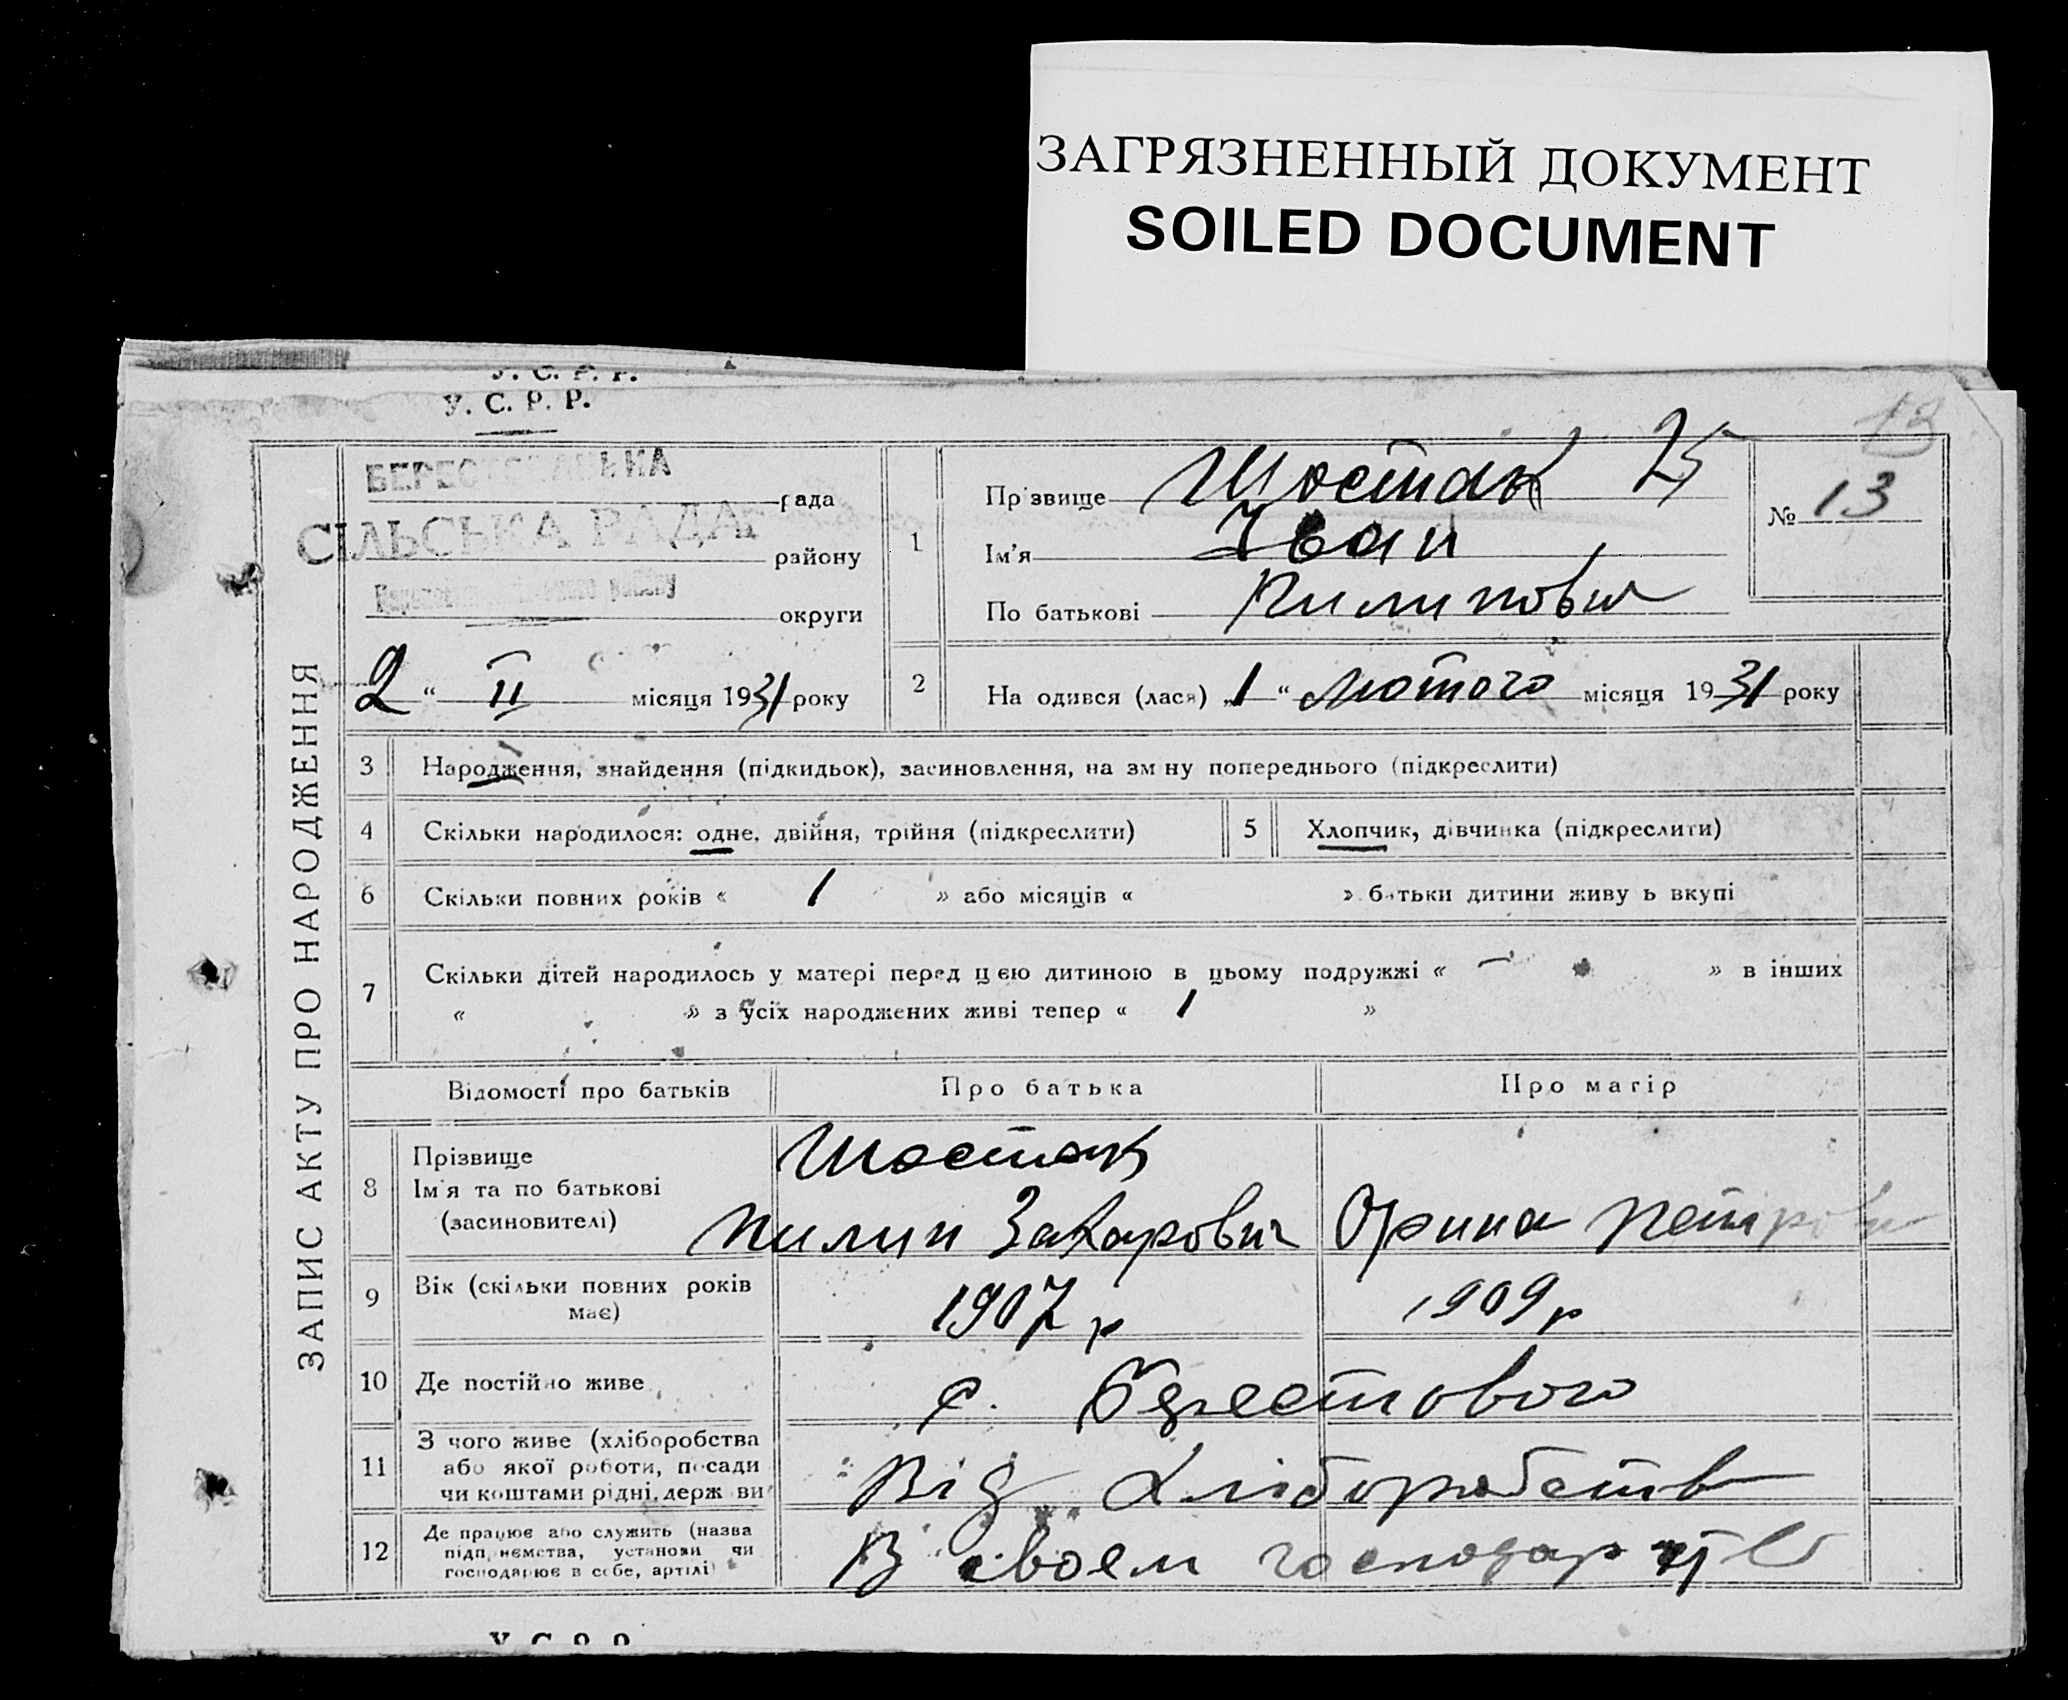 ЗАГРЯЗНЕННЫЙ ДОКУМЕНТ
SOILED DOCUMENT
У. С. Р. Р.
У. С. Р. Р.
19
ЗАПИС АКТУ ПРО НАРОДЖЕННЯ
рада
СІЛЬСЬКА РАДА
району
округи
2 “ II місяця 1931 року
1
Прізвище Шостак 25
Ім'я Іван
По батькові Пилипович
№ 13
2 На одився (лася) „1“ Лютого місяця 1931 року
3 Народження, знайдення (підкидьок), засиновлення, на зм ну попереднього (підкреслити)
4 Скільки народилося: одне, двійня, трійня (підкреслити) 5 Хлопчик, дівчинка (підкреслити)
6 Скільки повних років « 1 » або місяців « » батьки дитини живу ь вкупі
7 Скільки дітей народилось у матері перед цією дитиною в цьому подружжі « — » в інших
« » з усіх народжених живі тепер « 1 »
Відомості про батьків Про батька Про матір
8 Прізвище Шостак
Ім'я та по батькові
(засиновителі) Пилип Захарович Орина Петров
9 Вік (скільки повних років
має) 1907 р 1909 р
10 Де постійно живе с. Берестового
11 З чого живе (хліборобства
або якої роботи, посади
чи коштами рідні, держ ви Від Хліборобств
12 Де працює або служить (назва
підп, иємства, установи чи
господарює в себе, артілі) В своем господар
У С Р Р